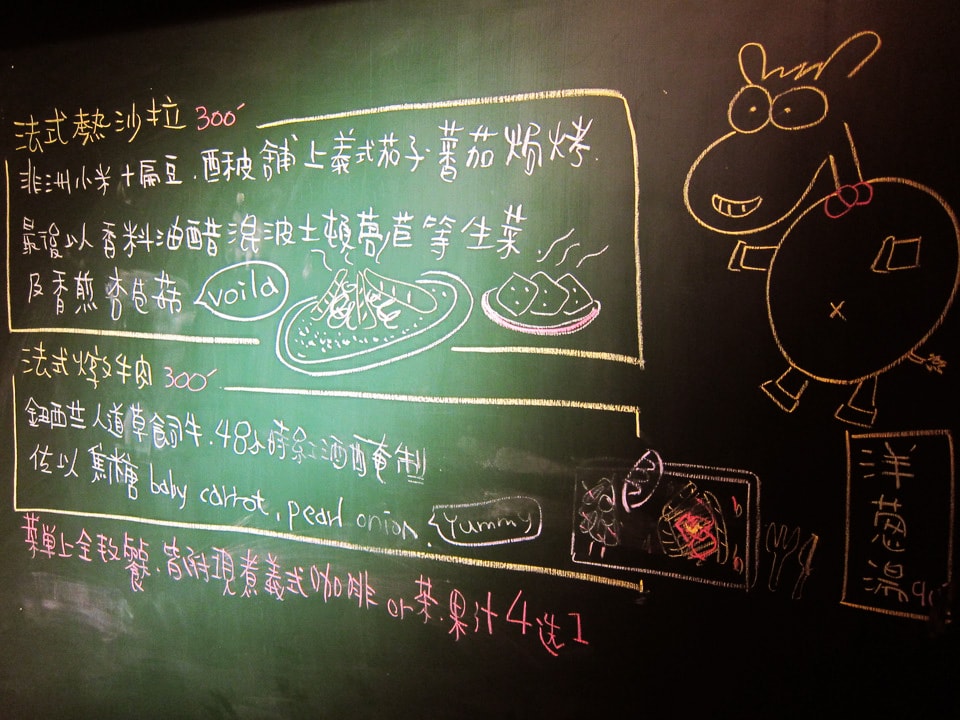 法式熱沙拉 300
非洲小米+扁豆.酥皮舖上義式茄子蕃茄焗烤.
最後以香料油醋混波士頓萵苣等生菜
及香煎杏包菇
voila
法式燉牛肉 300
紐西兰人道草飼牛.48小時紅酒醃制
佐以焦糖 baby carrot, pearl onion.
Yummy
菜單上全致餐.皆附現煮義式咖啡 or 茶.果汁 4选1
洋葱湯